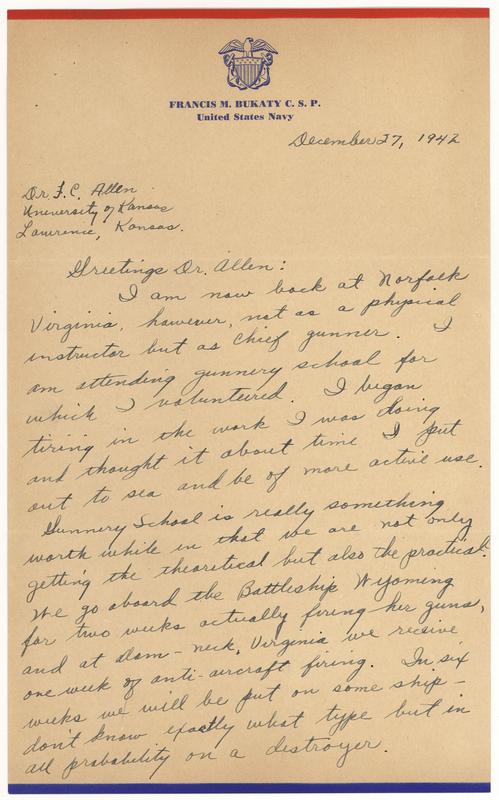 FRANCIS M. BUKATY C. S. P.
United States Navy
December 27, 1942
Dr. F. C. Allen
University of Kansas
Lawrence, Kansas.
Greetings Dr. Allen:
I am now back at Norfolk
Virginia, however, not as a physical
instructor but as chief gunner. I
am attending gunnery school for
which I volunteered. I began
tiring in the work I was doing
and thought it about time I put
out to sea and be of more active use.
Gunnery School is really something
worth while in that we are not only
getting the theoretical but also the practical.
We go aboard the Battleship Wyoming
for two weeks actually firing her guns,
and at Dam-neck, Virginia we receive
one week of anti-aircraft firing. In six
weeks we will be put on some ship -
don't know exactly what type but in
all probability on a destroyer.